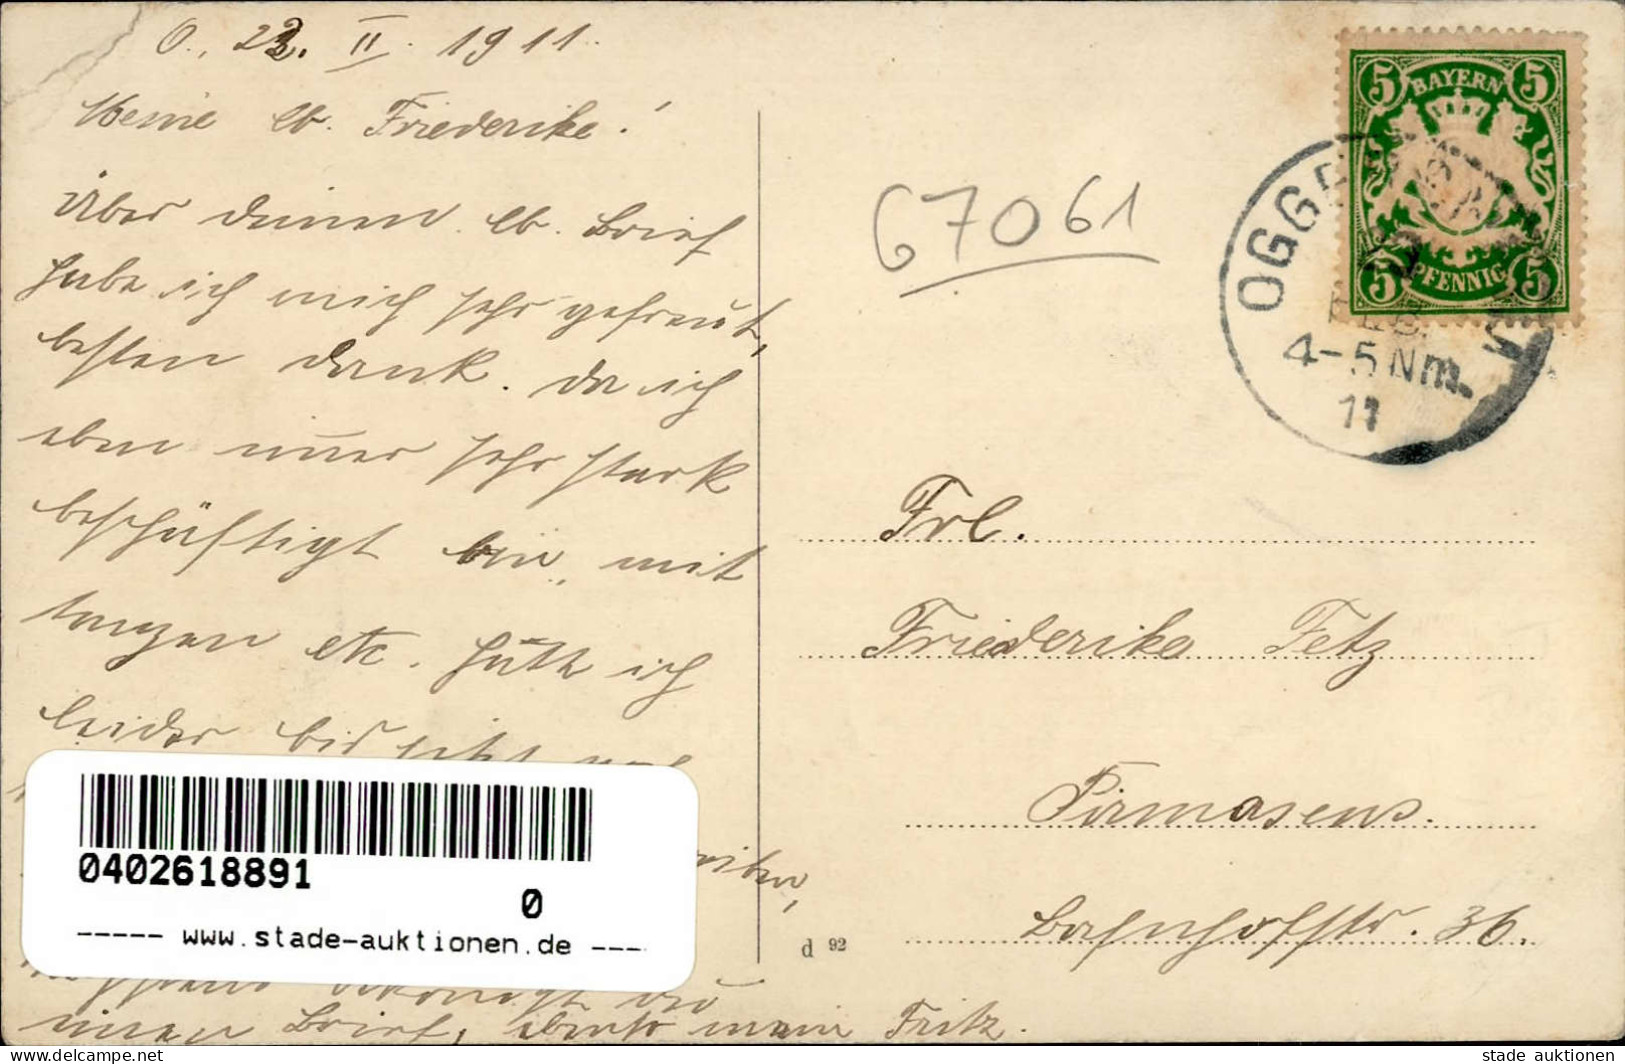 O., 23. II. 1911.
Meine lb. Friederike!
Über deinen lb. Brief
habe ich mich sehr gefreut,
besten Dank. Da ich
eben immer sehr stark
beschäftigt bin, mit
tanzen etc. hätte ich
leider bis jetzt
einen Brief, ebenso mein Fritz.
67061
BAYERN
5 5
5 PFENNIG 5
OGGERSHEIM
FEB.
4-5 Nm.
11
Frl.
Friederike Fetz
Pirmasens.
Bahnhofstr. 36.
d 92
0402618891
0
----- www.stade-auktionen.de ---
https://www.delcampe.net
stade auktionen